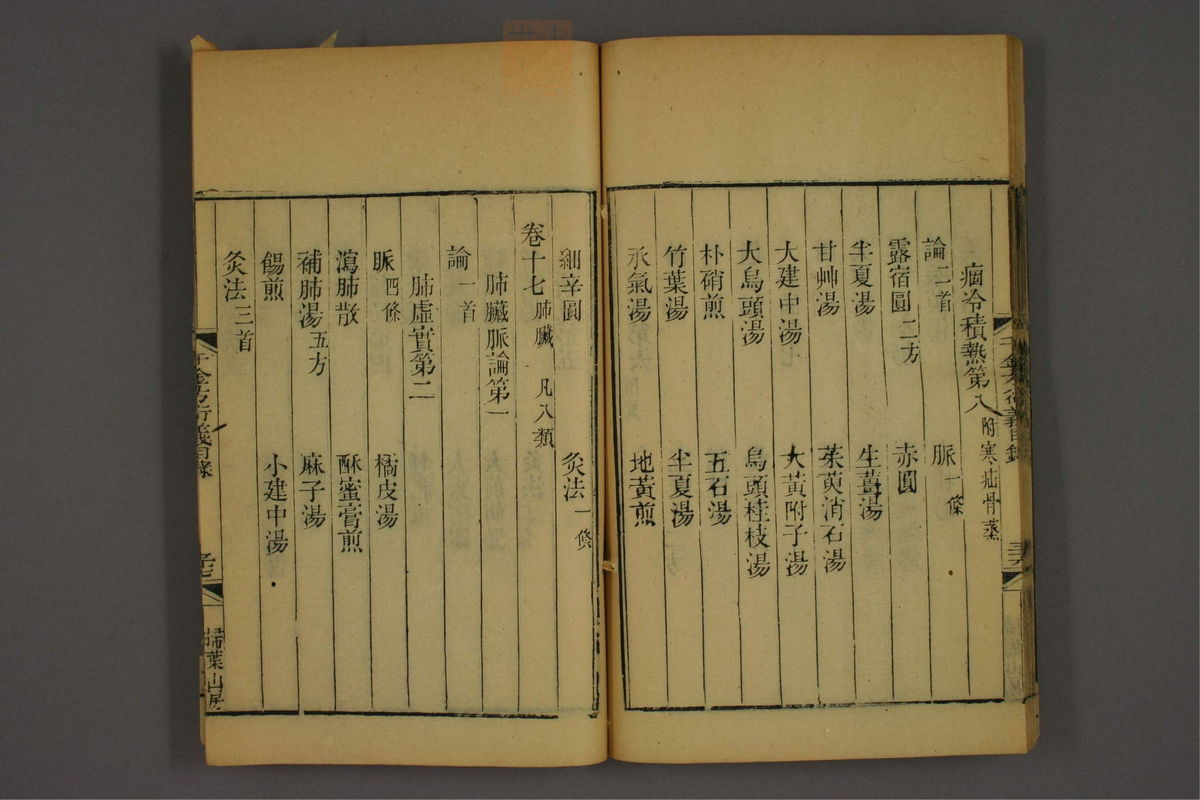 痼冷積熱第八 附寒疝骨蒸
論二首 脈一條
露宿圓二方 赤圓
半夏湯 生薑湯
甘艸湯 茱萸消石湯
大建中湯 大黃附子湯
大烏頭湯 烏頭桂枝湯
朴硝煎 五石湯
竹葉湯 半夏湯
承氣湯 地黃煎
細辛圓 灸法一條
卷十七 肺臟 凡八類
肺臟脈論第一
論一首
肺虛實第二
脈四條 橘皮湯
瀉肺散 酥蜜膏煎
補肺湯五方 麻子湯
餳煎 小建中湯
灸法三首
千金方衍義目錄
掃葉山房